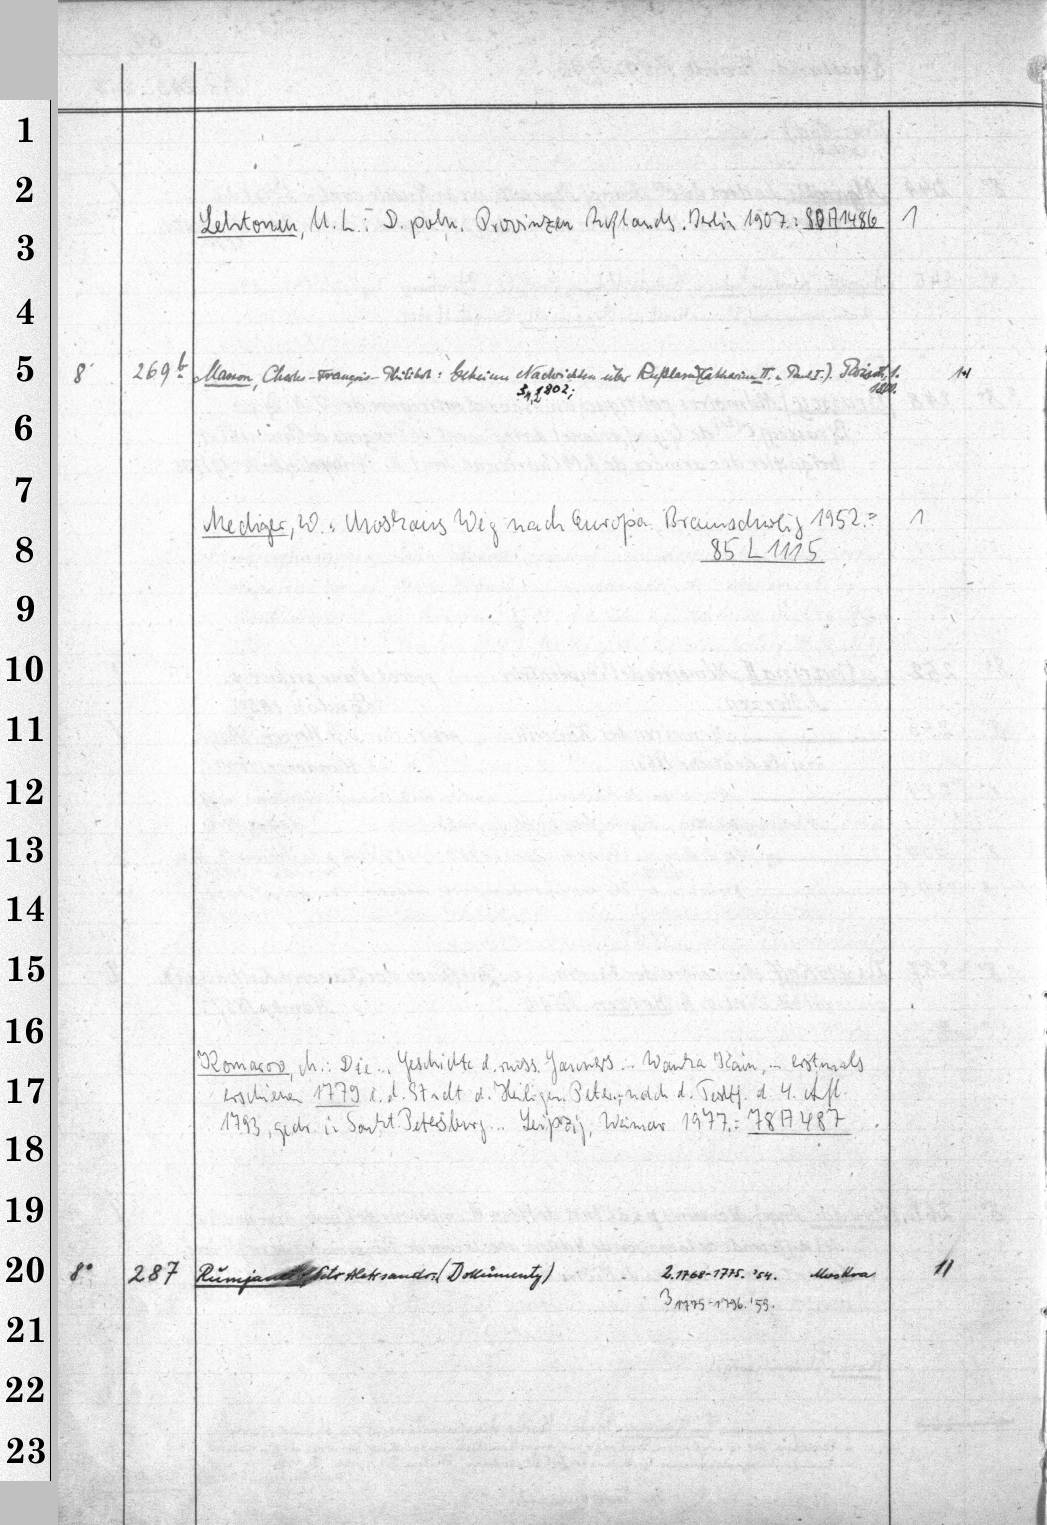 1
2
Lehtonen, U. L.: D. poln. Provinzen Rußlands. Berlin 1907.: 80A1486 1
3
4
5
8° 269 b Masson, Charles-François-Philibert: Geheime Nachrichten über Rußland (Katharina II. u. Paul I.). Paris 1. 1800. 1+
3,1802;
6
7
Mediger, W.: Moskaus Weg nach Europa. Braunschweig 1952.= 1
8
85 L 1115
9
10
11
12
13
14
15
16
Komarov, M.: Die ... Geschichte d. russ. Gauners ... Wanka Kain, ... erstmals
17
erschienen 1779 i. d. Stadt d. Heiligen Peter, nach d. Textf. d. 4. Aufl.
1793, gedr. in Sankt Petersburg ... Leipzig, Weimar 1977.: 78A487
18
19
20
8° 287 Rumjancev, Petr Aleksandr. (Dokumenty) 2. 1768-1775. '54. Moskva 11
3 1775-1796. '59.
21
22
23